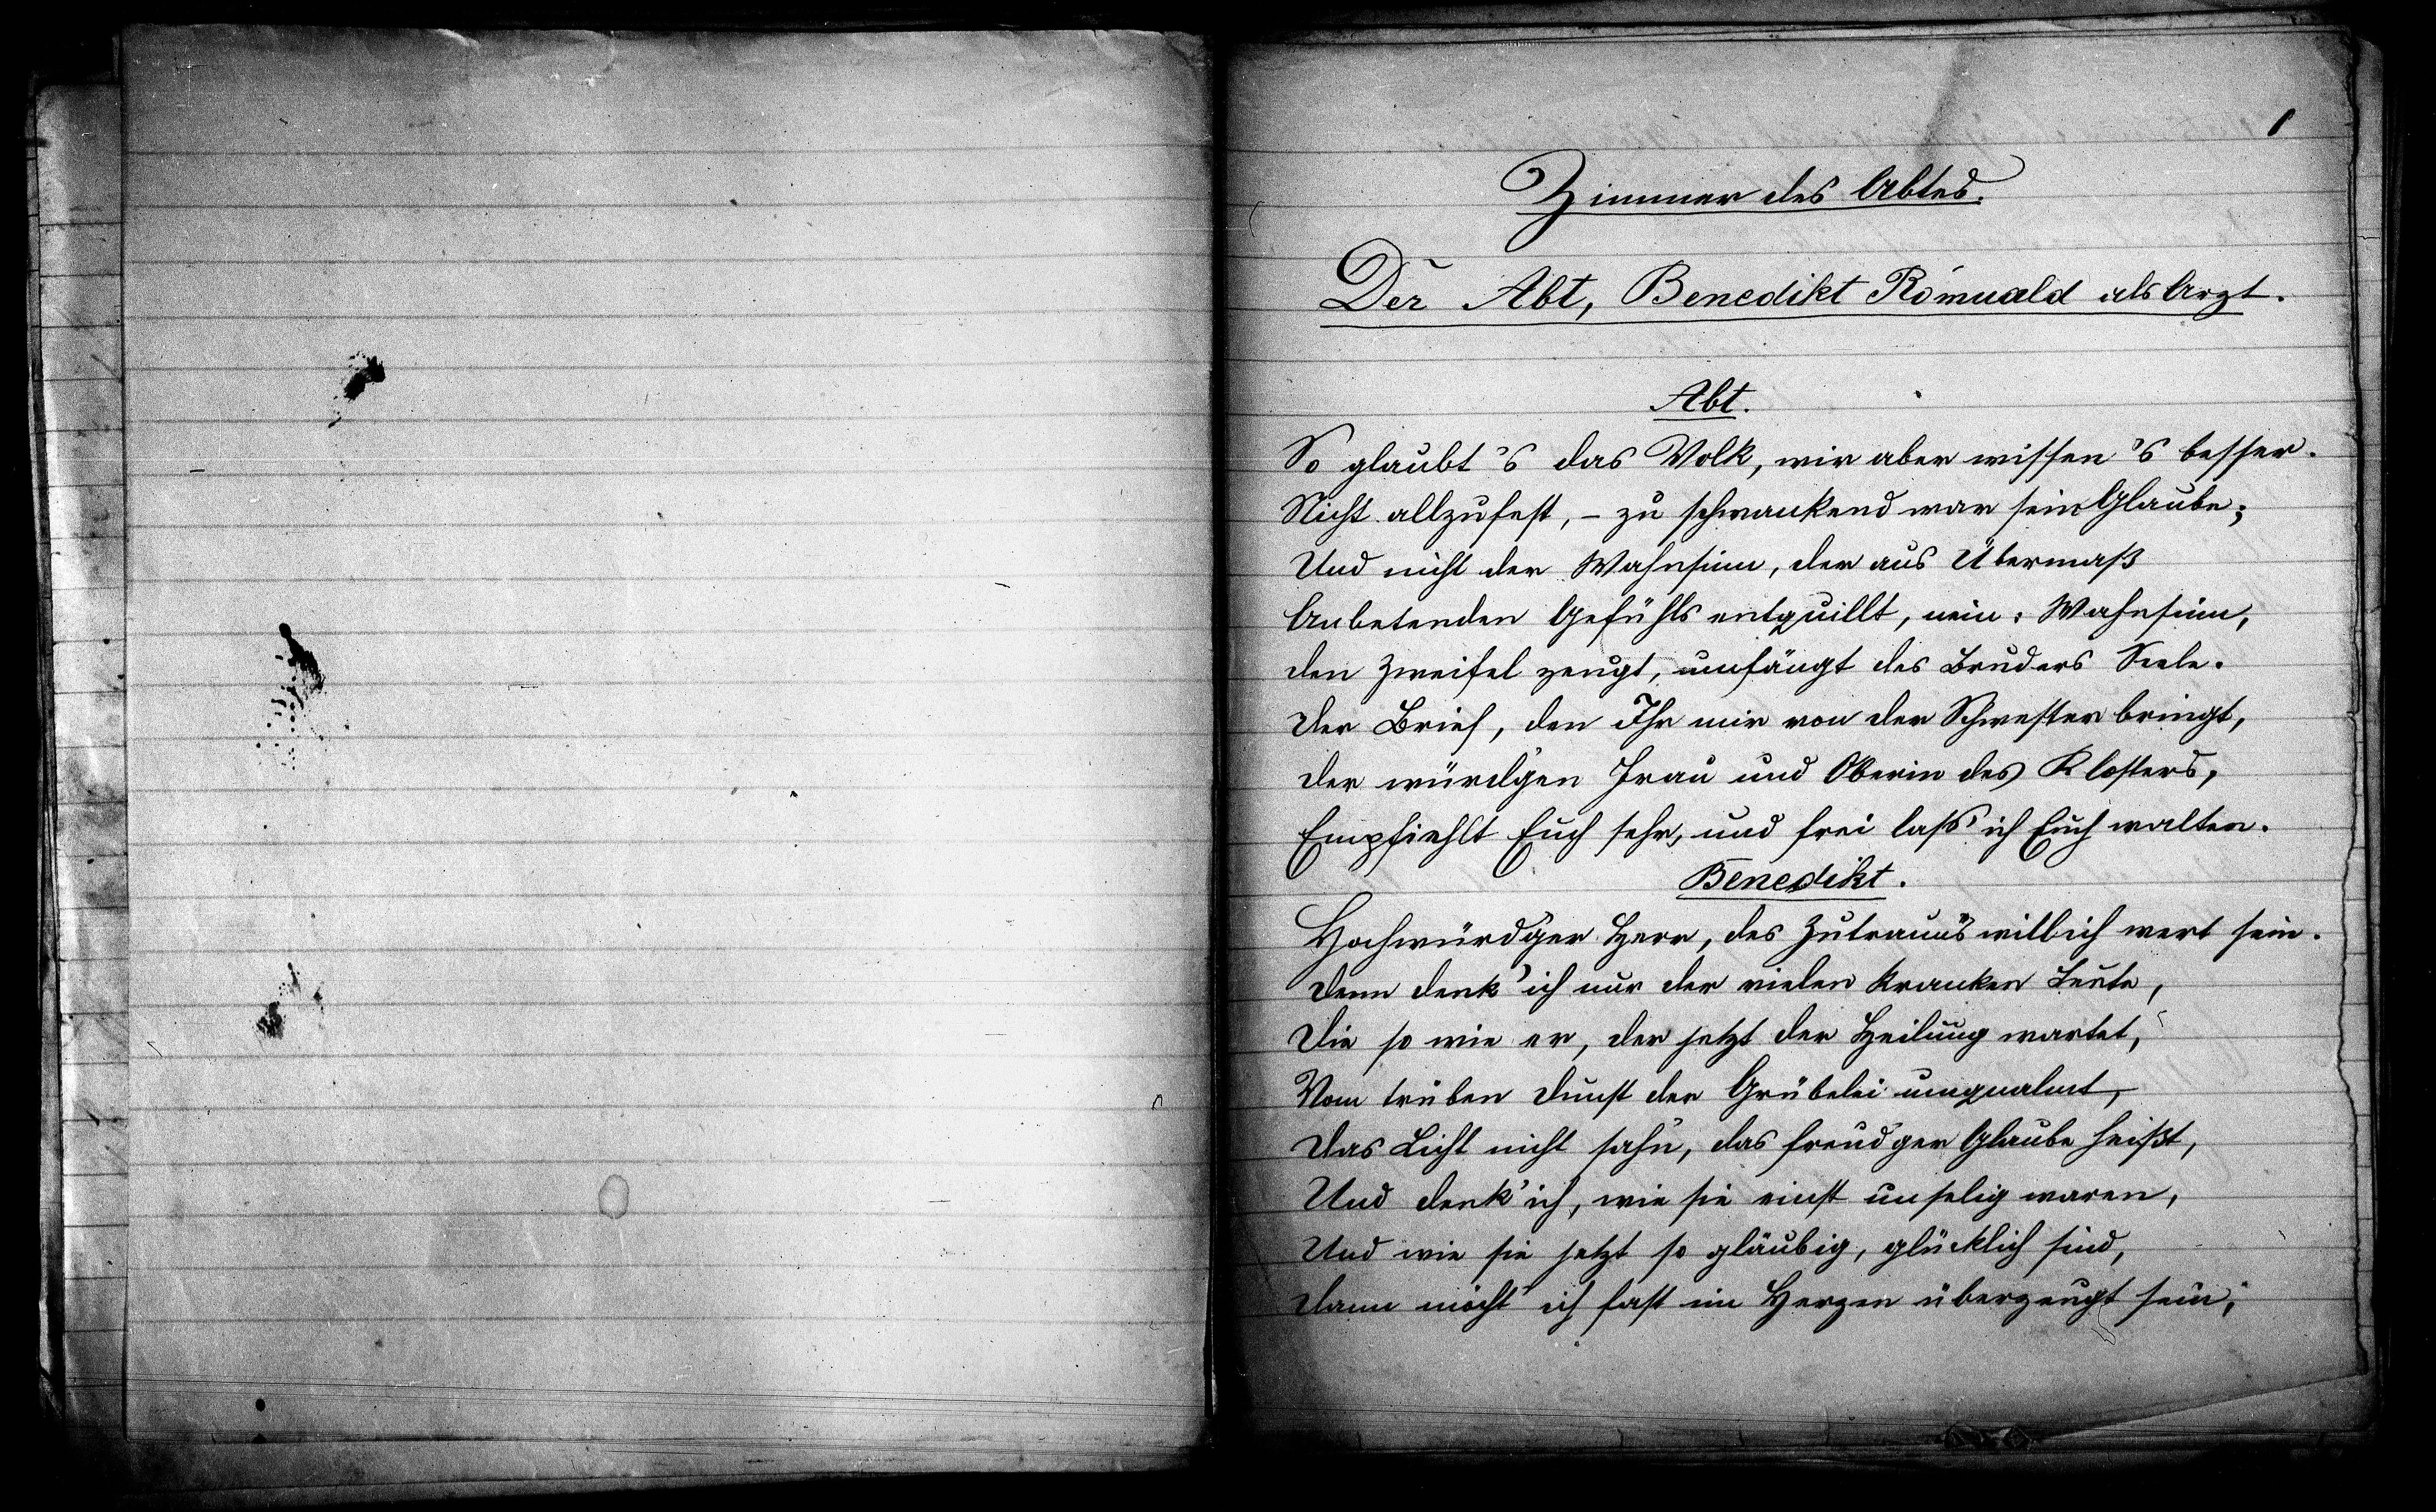 1
Zimmer des Abtes.
Der Abt, Benedikt Romuald als Arzt.
Abt.
So glaubt 's das Volk, wir aber wissen 's besser.
Nicht allzufest, – zu schwankend war sein Glaube;
Und nicht der Wahnsinn, der aus Übermaß
Anbetenden Gefühls entquillt, nein: Wahnsinn,
den Zweifel zeugt, umfängt des Bruders Seele.
Der Brief, den Ihr mir von der Schwester bringt,
der würd'gen Frau und Oberin des Klosters,
Empfiehlt Euch sehr, und frei lass' ich Euch walten.
Benedikt.
Hochwürd'ger Herr, des Zutrau'ns will ich wert sein.
Denn denk' ich nur der vielen kranken Leute,
Die so wie er, der jetzt der Heilung wartet,
Vom trüben Dunst der Grübelei umqualmt,
Das Licht nicht sah'n, das freud'ger Glaube heißt,
Und denk' ich, wie sie einst unselig waren,
Und wie sie jetzt so gläubig, glücklich sind,
Dann möcht' ich fast im Herzen überzeugt sein,